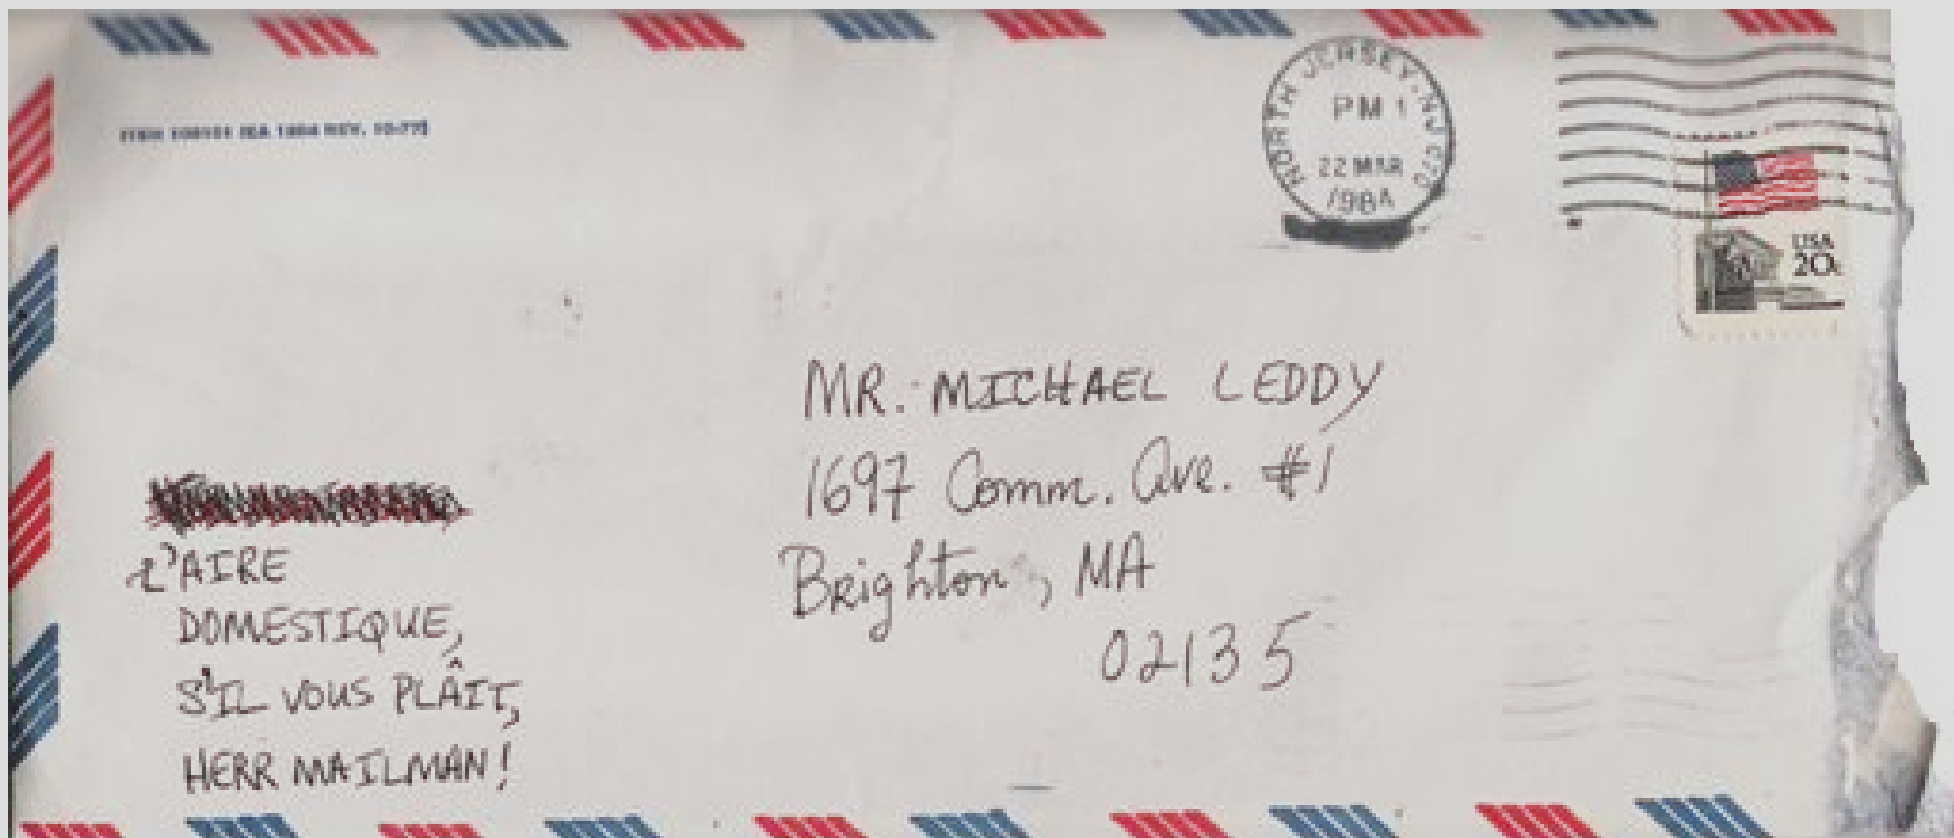 NORTH JERSEY, NJ 070
PM
22 MAR
1984
USA
20c
MR. MICHAEL LEDDY
1697 Comm. Ave. #1
Brighton, MA
02135
L'AIRE
DOMESTIQUE,
S'IL VOUS PLAÎT,
HERR MAILMAN!